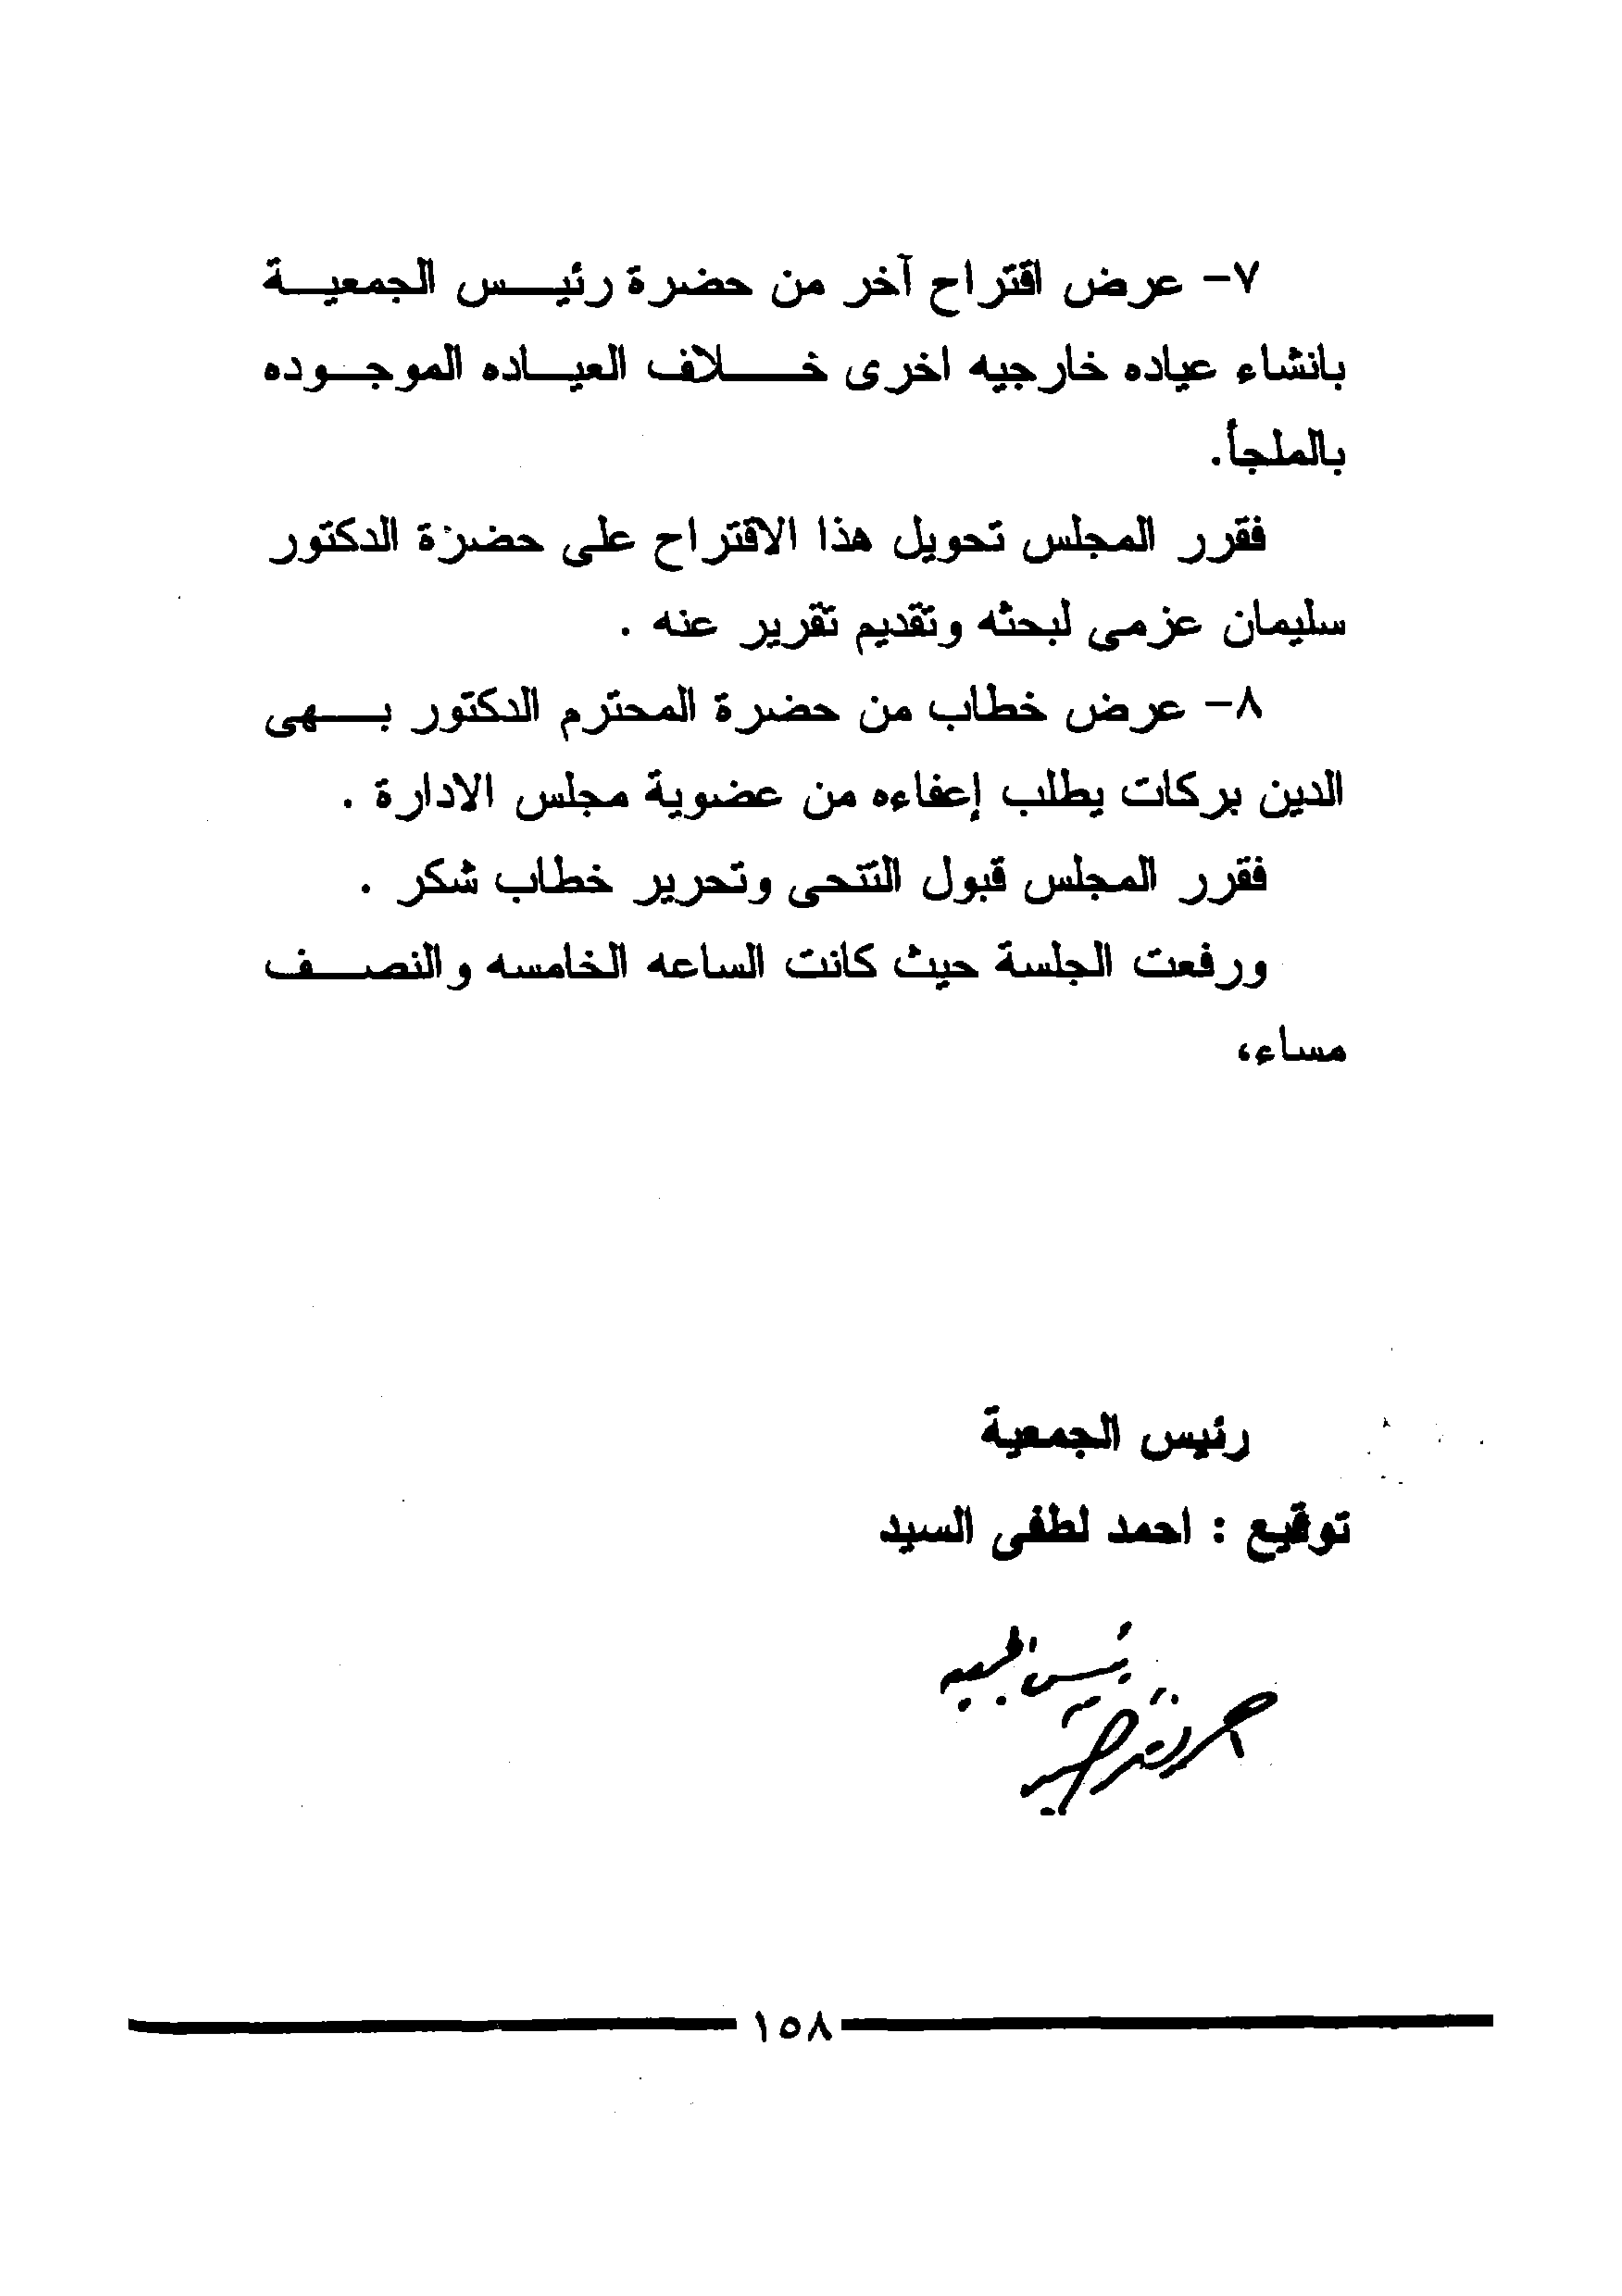 ٧- عرض اقتراح آخر من حضرة رئيس الجمعية
بانشاء عياده خارجيه اخرى خلاف العياده الموجوده
بالملجأ.
فقرر المجلس تحويل هذا الاقتراح على حضرة الدكتور
سليمان عزمى لبحثه وتقديم تقرير عنه .
٨- عرض خطاب من حضرة المحترم الدكتور بهى
الدين بركات يطلب إعفاءه من عضوية مجلس الادارة .
فقرر المجلس قبول التنحى وتحرير خطاب شكر .
ورفعت الجلسة حيث كانت الساعه الخامسه والنصف
مساء،
رئيس الجمعية
توقيع : احمد لطفى السيد
رئيس الجمعيه
١٥٨